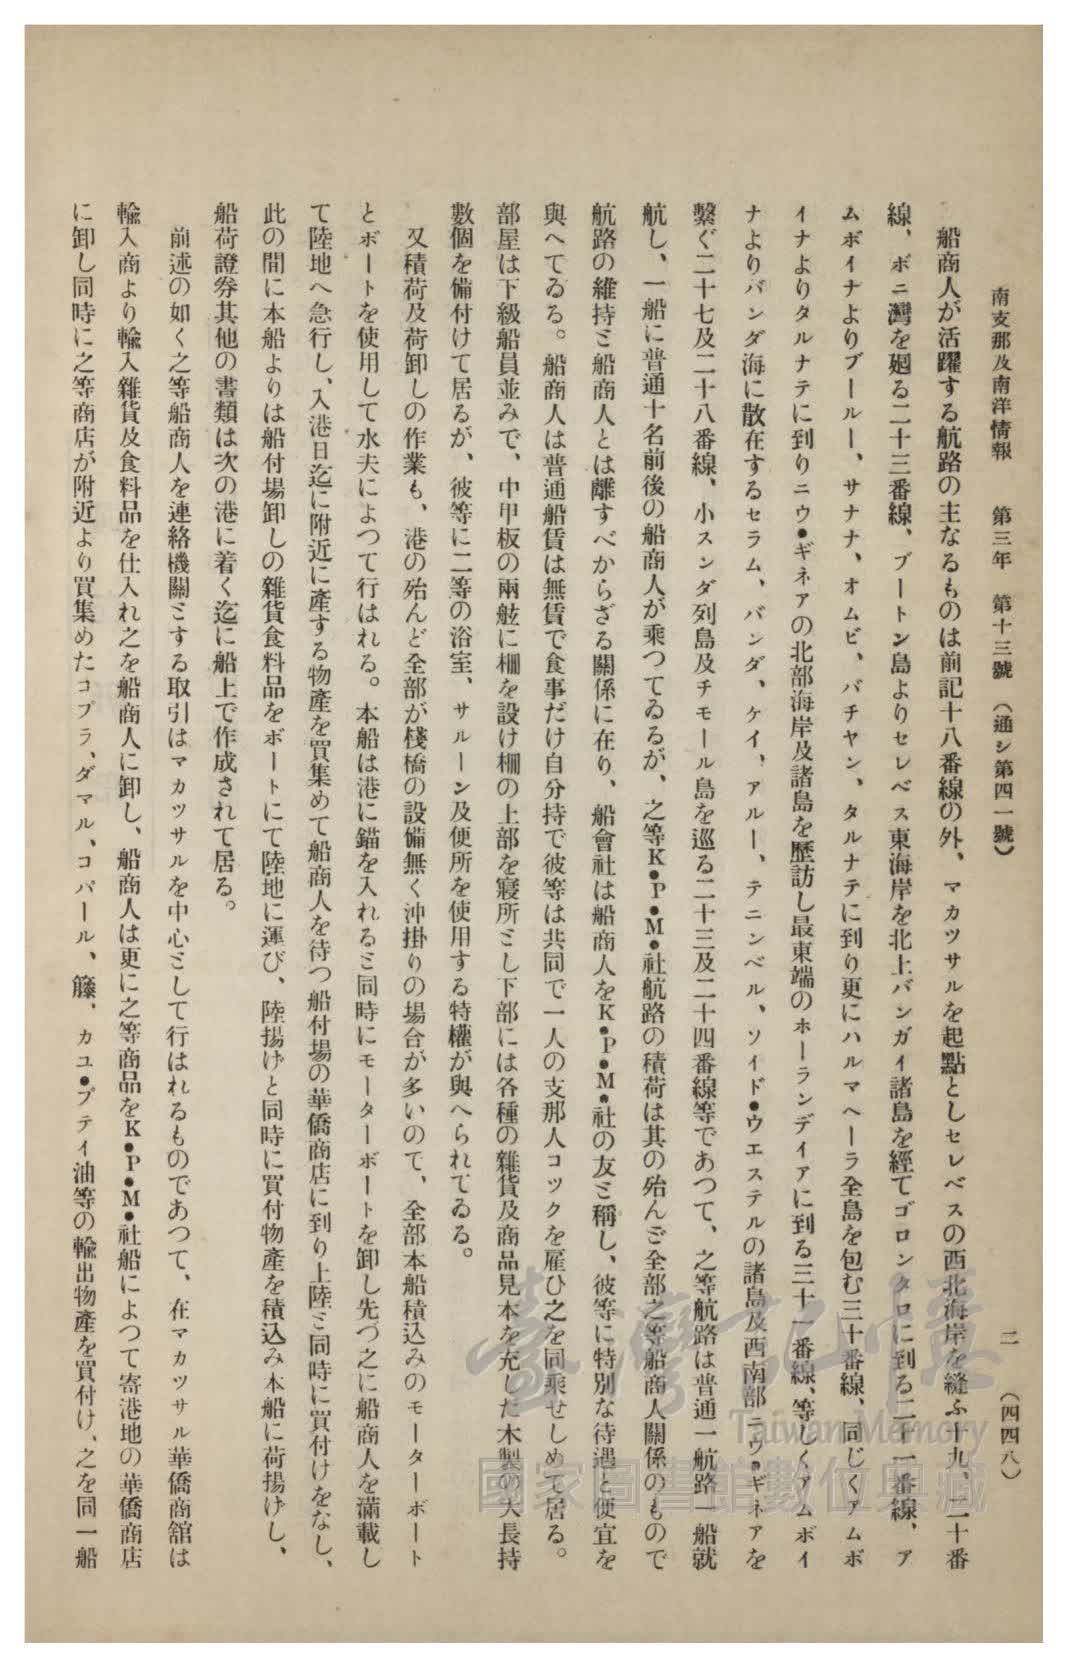 南支那及南洋情報　第三年　第十三號　（通シ第四一號）　二　（四四八）
船商人が活躍する航路の主なるものは前記十八番線の外、マカツサルを起點としセレベスの西北海岸を縫ふ十九、二十番
線、ボニ灣を廻る二十三番線、ブートン島よりセレベス東海岸を北上バンガイ諸島を經てゴロンタロに到る二十一番線、ア
ムボイナよりブールー、サナナ、オムビ、バチヤン、タルナテに到り更にハルマヘーラ全島を包む三十番線、同じくアムボ
イナよりタルナテに到りニウ•ギネアの北部海岸及諸島を歷訪し最東端のホーランデイアに到る三十一番線、等しくアムボイ
ナよりバンダ海に散在するセラム、バンダ、ケイ、アルー、テニンベル、ソイド•ウエステルの諸島及西南部ニウ•ギネアを
繫ぐ二十七及二十八番線、小スンダ列島及チモール島を巡る二十三及二十四番線等であつて、之等航路は普通一航路一船就
航し、一船に普通十名前後の船商人が乘つてゐるが、之等K•P•M•社航路の積荷は其の殆んど全部之等船商人關係のもので
航路の維持と船商人とは離すべからざる關係に在り、船會社は船商人をK•P•M•社の友と稱し、彼等に特別な待遇と便宜を
與へてゐる。船商人は普通船賃は無賃で食事だけ自分持で彼等は共同で一人の支那人コツクを雇ひ之を同乘せしめて居る。
部屋は下級船員並みで、中甲板の兩舷に棚を設け棚の上部を寢所とし下部には各種の雜貨及商品見本を充した木製の大長持
數個を備付けて居るが、彼等に二等の浴室、サルーン及便所を使用する特權が與へられてゐる。
又積荷及荷卸しの作業も、港の殆んど全部が棧橋の設備無く沖掛りの場合が多いので、全部本船積込みのモーターボート
とボートを使用して水夫によつて行はれる。本船は港に錨を入れると同時にモーターボートを卸し先づ之に船商人を滿載し
て陸地へ急行し、入港日迄に附近に產する物產を買集めて船商人を待つ船付場の華僑商店に到り上陸と同時に買付けをなし、
此の間に本船よりは船付場卸しの雜貨食料品をボートにて陸地に運び、陸揚げと同時に買付物產を積込み本船に荷揚げし、
船荷證券其他の書類は次の港に着く迄に船上で作成されて居る。
前述の如く之等船商人を連絡機關とする取引はマカツサルを中心として行はれるものであつて、在マカツサル華僑商舘は
輸入商より輸入雜貨及食料品を仕入れ之を船商人に卸し、船商人は更に之等商品をK•P•M•社船によつて寄港地の華僑商店
に卸し同時に之等商店が附近より買集めたコプラ、ダマル、コパール、籐、カユ•プテイ油等の輸出物產を買付け、之を同一船
臺灣記憶
Taiwan Memory
國家圖書館數位典藏